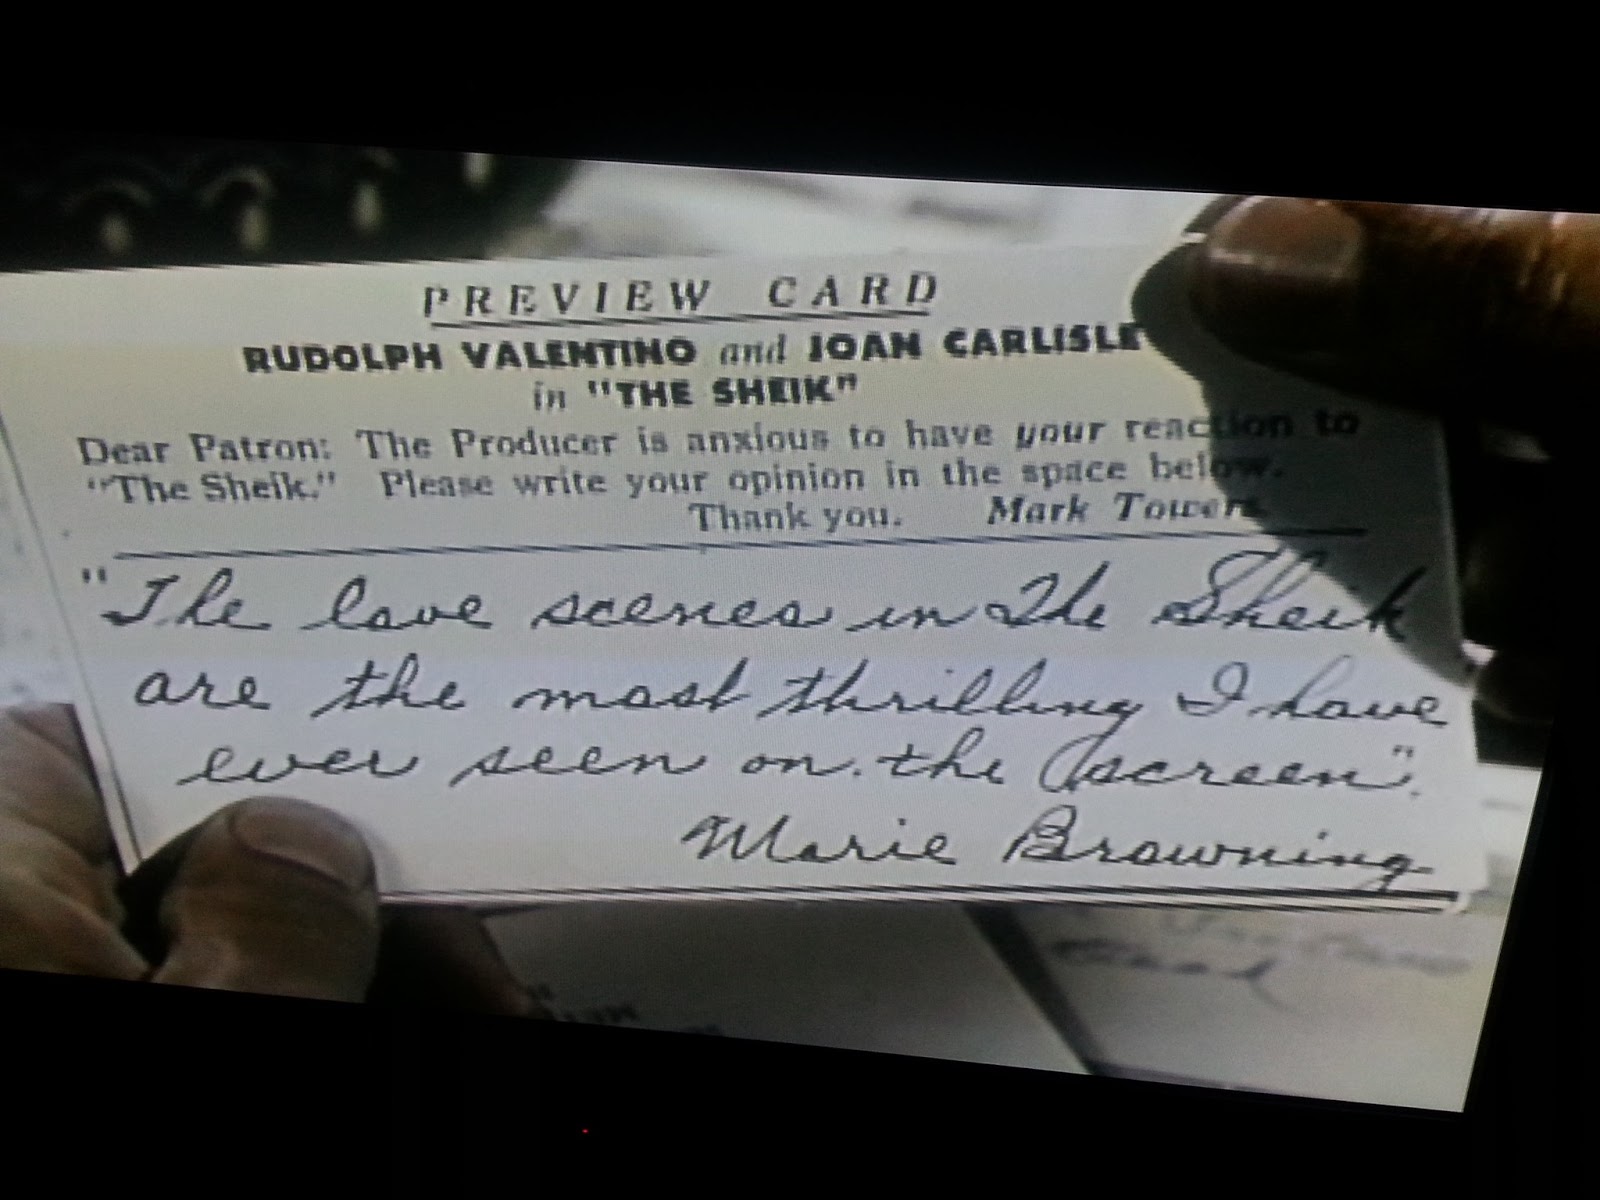 PREVIEW CARD
RUDOLPH VALENTINO and JOAN CARLISLE
in "THE SHEIK"
Dear Patron: The Producer is anxious to have your reaction to
"The Sheik." Please write your opinion in the space below.
Thank you. Mark Towers
"The love scenes in The Sheik
are the most thrilling I have
ever seen on the screen".
Marie Browning